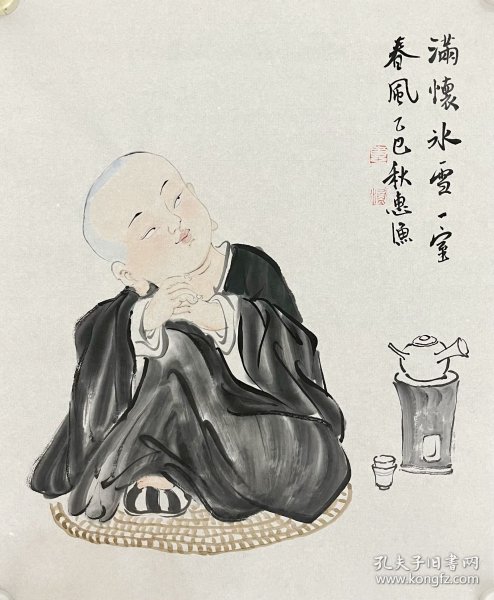 滿懷冰雪一室
春風乙巳秋惠漁
孔夫子旧书网
www.kongfz.com